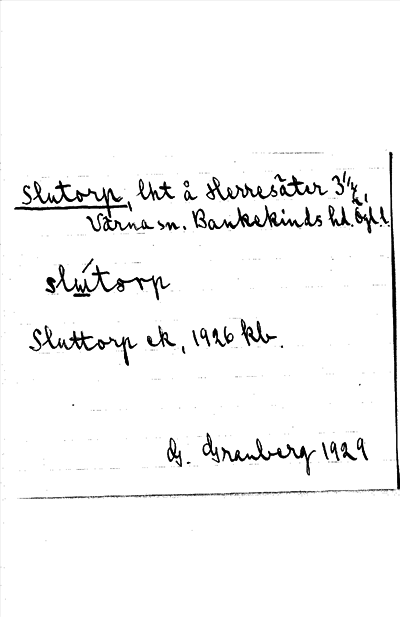 Slutorp, lht å Herresäter 3 1/2,
Värna sn. Bankekinds hd. Ögl.
slú̲torp
Sluttorp ek, 1926 kb.
G. Granberg 1929